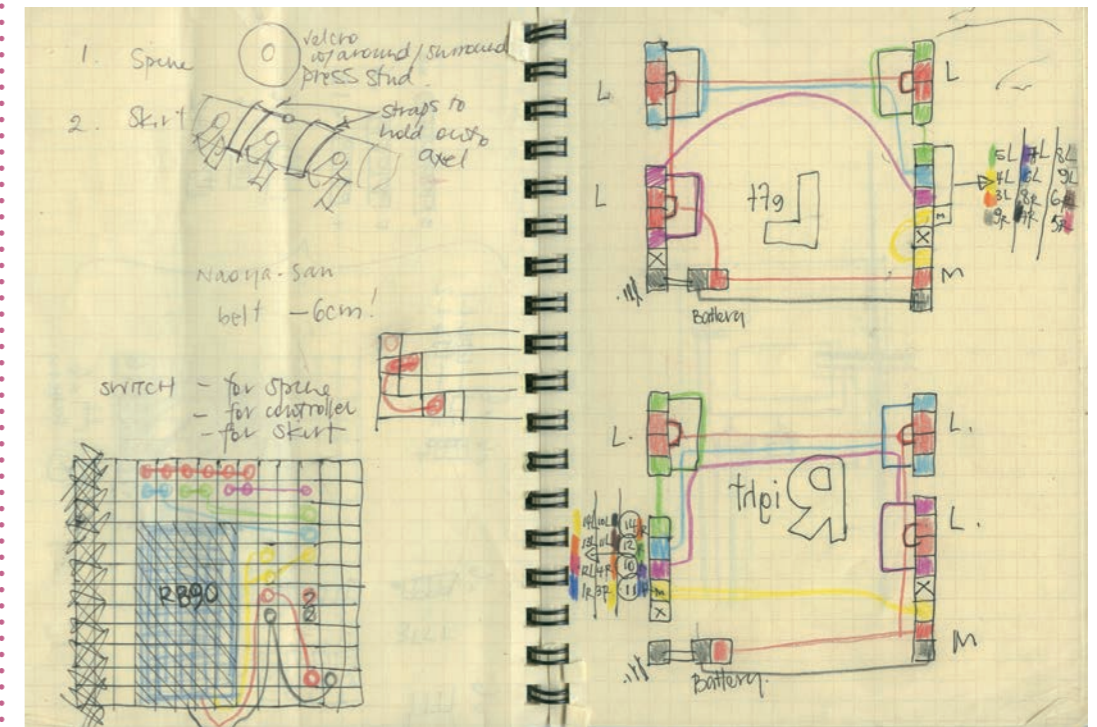 1. Spine
velcro
w/around/surround
press stud.
2. Skirt
straps to
hold onto
axel
Naoya-san
belt - 6cm!
SWITCH - for spine
- for controller
- for skirt
RB90
L
L
L
Left
M
X
X
M
Battery
5L 7L 8L
4L 6L 9L
3L 8R 6R
9R 7R 5R
L.
L.
L.
Right
14
12
10
11
M
X
X
M
Battery.